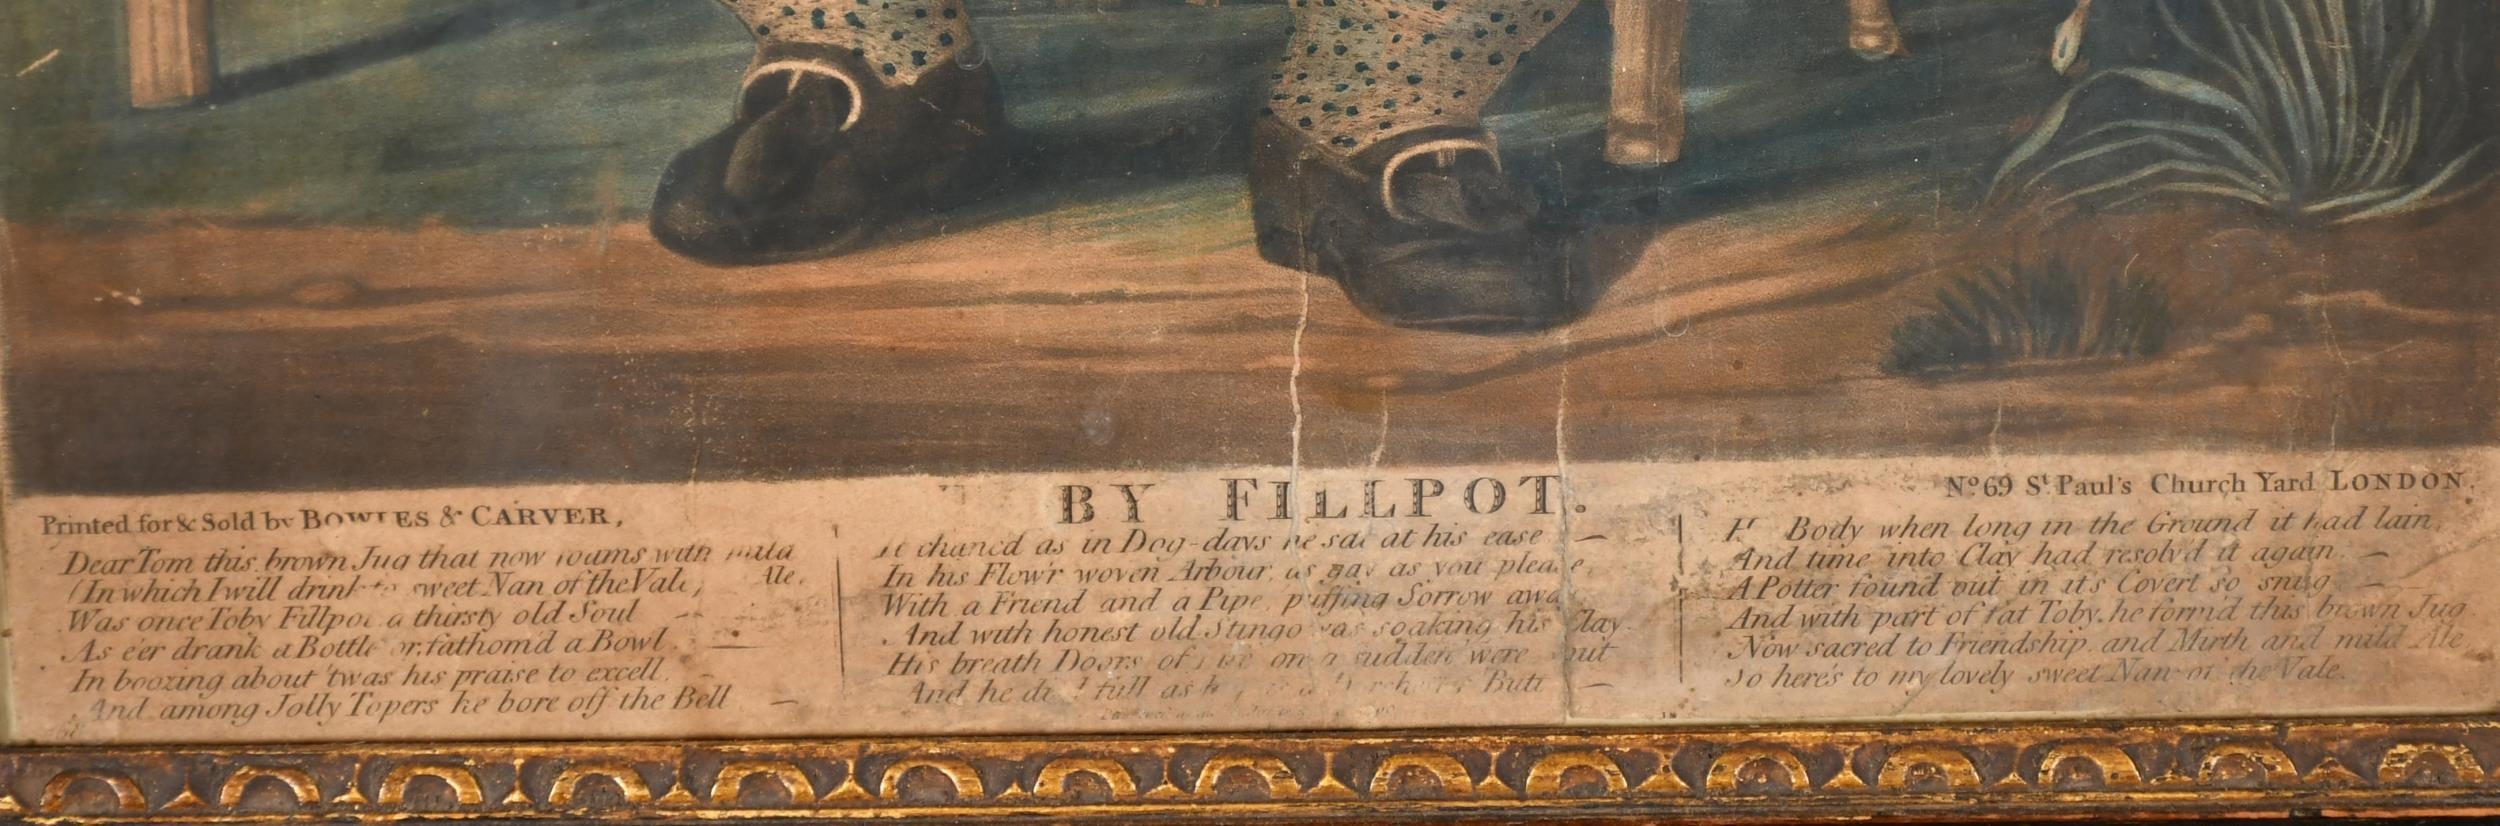 BY FILLPOT.
Printed for & Sold by BOWLES & CARVER,
No. 69 St. Paul's Church Yard LONDON.
Dear Tom this brown Jug that now foams with mild
Ale,
(In which I will drink to sweet Nan of the Vale)
Was once Toby Fillpot a thirsty old Soul
As e'er drank a Bottle or fathom'd a Bowl
In boozing about 'twas his praise to excell
And among Jolly Topers he bore off the Bell
It chanc'd as in Dog-days he sat at his ease
In his Flow'r woven Arbour, as gay as you please,
With a Friend and a Pipe, puffing Sorrow away
And with honest old Stingo was soaking his Clay
His breath Doors of on a sudden were shut
And he full as Butt
Body when long in the Ground it had lain,
And time into Clay had resolv'd it again
A Potter found out in its Covert so snug
And with part of fat Toby, he form'd this brown Jug
Now sacred to Friendship, and Mirth and mild Ale,
So here's to my lovely sweet Nan of the Vale.